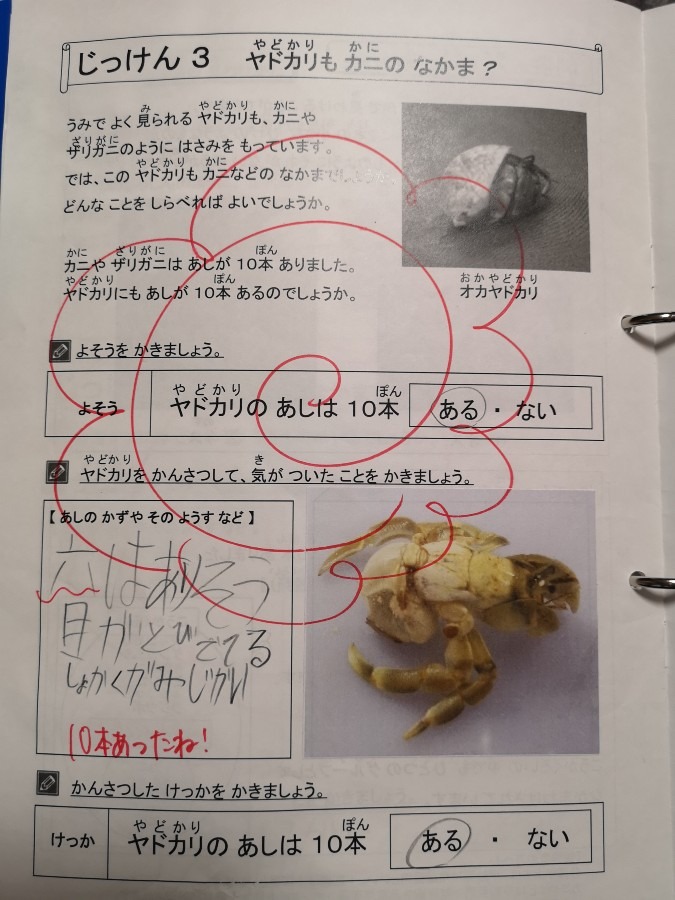 じっけん 3 ヤドカリも カニの なかま?
やどかり かに
うみで よく 見られる ヤドカリも、カニや
み やどかり かに
ザリガニのように はさみを もっています。
ざりがに
では、この ヤドカリも カニなどの なかまでしょうか。
やどかり かに
どんな ことを しらべれば よいでしょうか。
カニや ザリガニは あしが 10本 ありました。
かに ざりがに ぽん
ヤドカリにも あしが 10本 あるのでしょうか。
やどかり ぽん
おかやどかり
オカヤドカリ
よそうを かきましょう。
よそう ヤドカリの あしは 10本 ある ・ ない
やどかり ぽん
ヤドカリを かんさつして、気が ついた ことを かきましょう。
やどかり き
【 あしの かずや その ようす など 】
六はありそう
目がとびでてる
しょかくがみじかい
10本あったね!
かんさつした けっかを かきましょう。
けっか ヤドカリの あしは 10本 ある ・ ない
やどかり ぽん